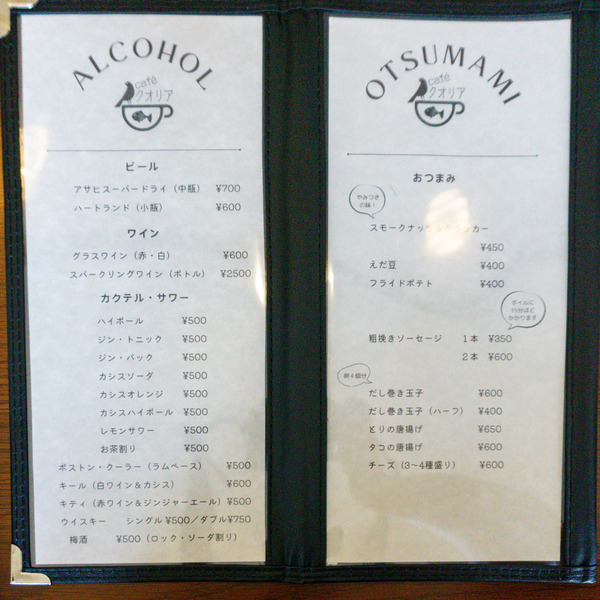 ALCOHOL
café
クオリア
ビール
アサヒスーパードライ（中瓶） ¥700
ハートランド（小瓶） ¥600
ワイン
グラスワイン（赤・白） ¥600
スパークリングワイン（ボトル） ¥2500
カクテル・サワー
ハイボール ¥500
ジン・トニック ¥500
ジン・バック ¥500
カシスソーダ ¥500
カシスオレンジ ¥500
カシスハイボール ¥500
レモンサワー ¥500
お茶割り ¥500
ボストン・クーラー（ラムベース） ¥500
キール（白ワイン＆カシス） ¥600
キティ（赤ワイン＆ジンジャーエール） ¥500
ウイスキー シングル¥500／ダブル¥750
梅酒 ¥500（ロック・ソーダ割り）
OTSUMAMI
café
クオリア
おつまみ
やみつき
の味！
スモークナッツ＆クラッカー
¥450
えだ豆 ¥400
フライドポテト ¥400
ボイルに
15分ほど
かかります
粗挽きソーセージ 1本 ¥350
2本 ¥600
卵4個分
だし巻き玉子 ¥600
だし巻き玉子（ハーフ） ¥400
とりの唐揚げ ¥650
タコの唐揚げ ¥600
チーズ（3〜4種盛り） ¥600